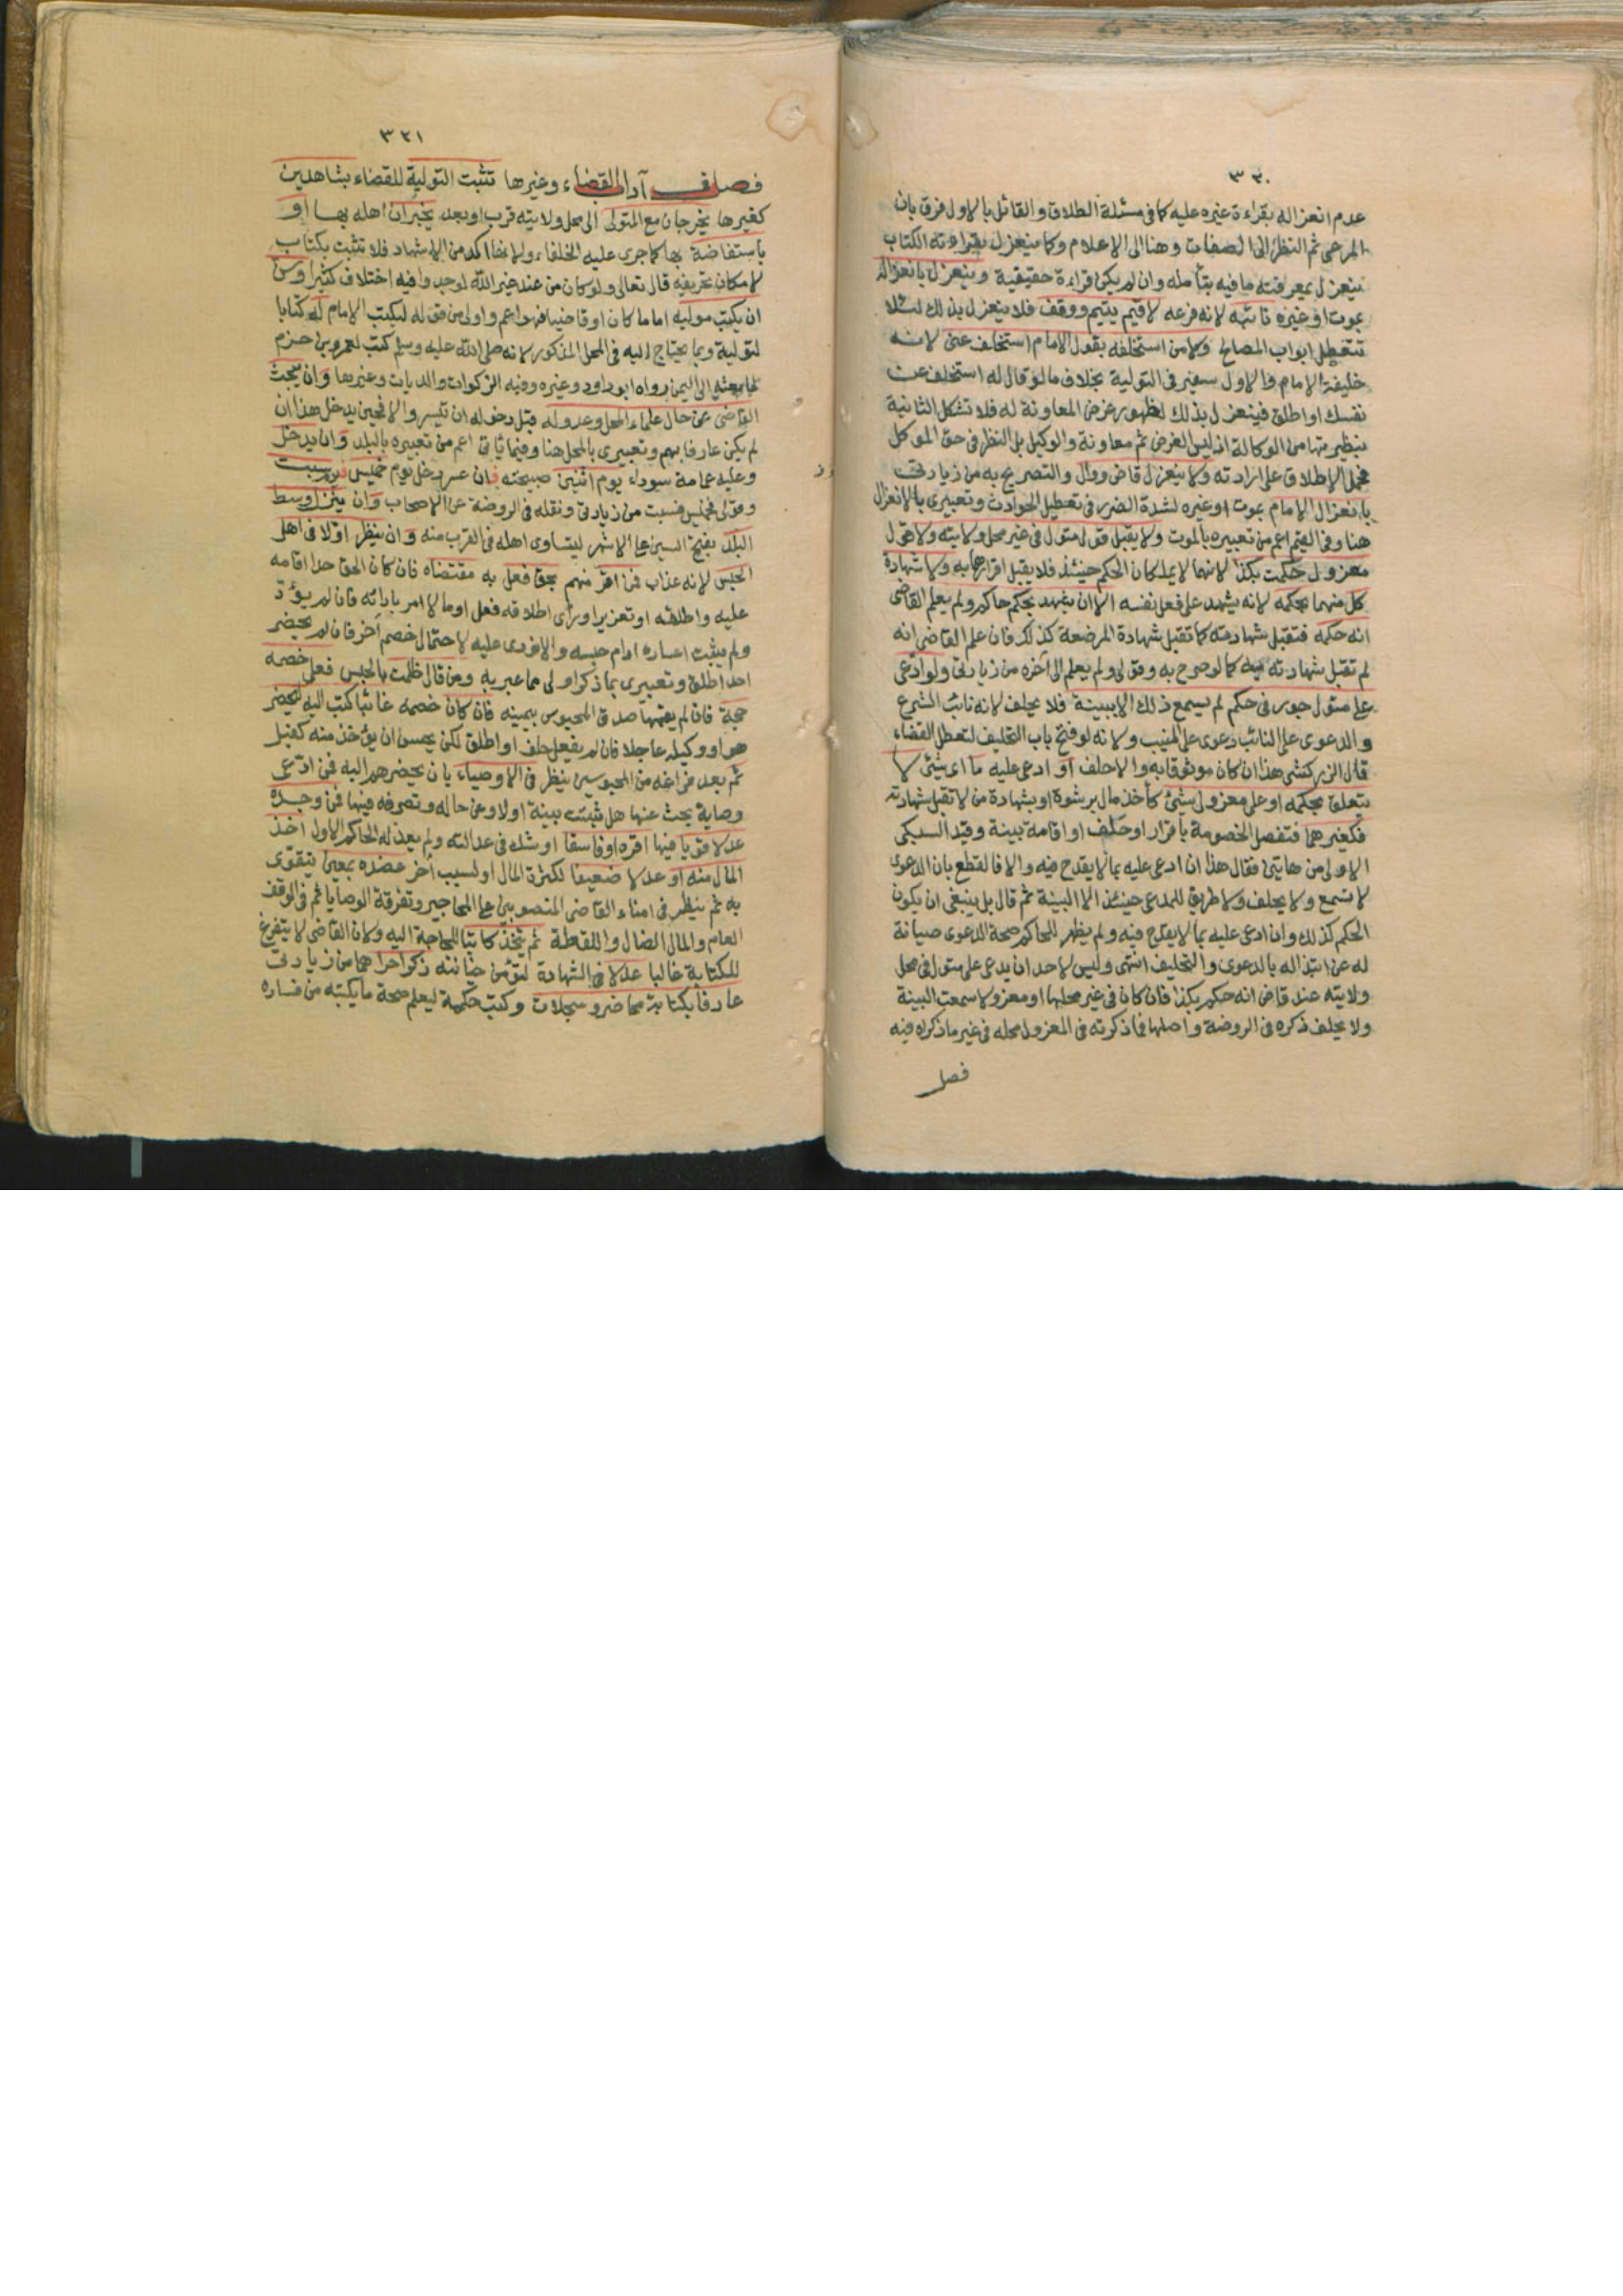 ٣٣٠
عدم انعزاله بقراءة غيره عليه كما فى مسئلة الطلاق والقائل بالاول فرق بان
المرعى ثم النظر الى الصفات وهنا الى الاعلام وكما ينعزل بقراءته الكتاب
ينعزل بمعرفته ما فيه بتأمله وان لم يكن قراءة حقيقية وينعزل بانعزاله
بموت او غيره نائبه لانه فرعه لا قيم يتيم ووقف فلا ينعزل بذلك لئلا
تتعطل ابواب المصالح ولا من استخلفه بقول الامام استخلف عنى لانه
خليفة الامام والاول سفير فى التولية بخلاف ما لو قال له استخلف عن
نفسك او اطلق فينعزل بذلك لظهور غرض المعاونة له فلا تشكل الثانية
بنظيرتها من الوكالة اذ ليس الغرض ثم معاونة والوكيل بل النظر فى حق الموكل
فحمل الاطلاق على ارادته ولا ينعزل قاض ووال والتصريح به من زيادتى
بانعزال الامام بموت او غيره لشدة الضرر فى تعطيل الحوادث وتعبيرى بالانعزال
هنا وفى القيم اعم من تعبيره بالموت ولا يقبل قول متول فى غير محل ولايته ولا قول
معزول حكمت بكذا لانهما لا يملكان الحكم حينئذ فلا يقبل اقرارهما به ولا شهادة
كل منهما بحكمه لانه يشهد على فعل نفسه الا ان يشهد بحكم حاكم ولم يعلم القاضى
انه حكمه فتقبل شهادته كما تقبل شهادة المرضعة كذلك فان علم القاضى انه
لم تقبل شهادته فيه كما لو صرح به وقولى ولم يعلم الى آخره من زيادتى ولو ادعى
على متول جور فى حكم لم يسمع ذلك الا ببينة فلا يحلف لانه نائب الشرع
والدعوى على النائب دعوى على المنيب ولانه لو فتح باب التحليف لتعطل القضاء
قال الزركشى هذا ان كان موثوقا به والا حلف او ادعى عليه ما اى بشئ لا
يتعلق بحكمه او على معزول بشئ كأخذ مال برشوة او بشهادة من لا تقبل شهادته
فكغيرهما فتفصل الخصومة باقرار او حلف او اقامة بينة وقيد السبكى
الاولى من هاتين فقال هذا ان ادعى عليه بما لا يقدح فيه والا فالقطع بان الدعوى
لا تسمع ولا يحلف ولا طريق للمدعى حينئذ الا البينة ثم قال بل ينبغى ان يكون
الحكم كذلك وان ادعى عليه بما لا يقدح فيه ولم يظهر للحاكم صحة الدعوى صيانة
له عن ابتذاله بالدعوى والتحليف انتهى وليس لاحد ان يدعى على متول فى محل
ولايته عند قاض انه حكم بكذا فان كان فى غير محلها او معزولا سمعت البينة
ولا يحلف ذكره فى الروضة واصلها فما ذكرته فى المعزول محله فى غير ما ذكراه فيه
فصل
٣٢١
فصل فى آداب القضاء وغيرها تثبت التولية للقضاء بشاهدين
كغيرها يخرجان مع المتولى الى محل ولايته قرب او بعد يخبران اهله بها او
باستفاضة بها كما جرى عليه الخلفاء ولانها آكد من الاشهاد فلا تثبت بكتاب
لامكان تحريفه قال تعالى ولو كان من عند غير الله لوجدوا فيه اختلافا كثيرا وسن
ان يكتب موليه اماما كان او قاضيا فهو اعم واولى من قوله ليكتب الامام له كتابا
لتولية وبما يحتاج اليه فى المحل المذكور لانه صلى الله عليه وسلم كتب لعمرو بن حزم
لما بعثه الى اليمن رواه ابو داود وغيره وفيه الزكوات والديات وغيرها وان يبحث
القاضى عن حال علماء المحل وعدوله قبل دخوله ان تيسر والا فحين يدخل هذا ان
لم يكن عارفا بهم وتعبيرى بالمحل هنا وفيما ياتى اعم من تعبيره بالبلد وان يدخل
وعليه عمامة سوداء يوم اثنين صبيحته فان عسر دخل يوم خميس فسبت
وقولى فخميس فسبت من زيادتى ونقله فى الروضة عن الاصحاب وان ينزل وسط
البلد بفتح السين على الاشهر ليتساوى اهله فى القرب منه وان ينظر اولا فى اهل
الحبس لانه عذاب فمن اقر منهم بحق فعل به مقتضاه فان كان الحق حدا اقامه
عليه واطلقه او تعزيرا ورأى اطلاقه فعل او مالا امر بادائه فان لم يؤد
ولم يثبت اعساره ادام حبسه والا نودى عليه لاحتمال خصم آخر فان لم يحضر
احد اطلق وتعبيرى بما ذكر اولى مما عبر به ومن قال ظلمت بالحبس فعلى خصمه
حجة فان لم يقمها صدق المحبوس بيمينه فان كان خصمه غائبا كتب اليه ليحضر
هو او وكيله عاجلا فان لم يفعل حلف او اطلق لكن يحسن ان يؤخذ منه كفيل
ثم بعد فراغه من المحبوسين ينظر فى الاوصياء بان يحضرهم اليه فمن ادعى
وصاية بحث عنها هل ثبتت ببينة اولا وعن حاله وتصرفه فيها فمن وجده
عدلا قويا فيها اقره او فاسقا او شك فى عدالته ولم يعدله الحاكم الاول اخذ
المال منه او عدلا ضعيفا لكثرة المال او لسبب آخر عضده بمعين يتقوى
به ثم ينظر فى امناء القاضى المنصوبين على المحاجير وتفرقة الوصايا ثم فى الوقف
العام والمال الضال واللقطة ثم يتخذ كاتبا للحاجة اليه ولان القاضى لا يتفرغ
للكتابة غالبا عدلا فى الشهادة لتؤمن خيانته ذكرا حرا هما من زيادتى
عارفا بكتابة محاضر وسجلات وكتب حكمية ليعلم صحة ما يكتبه من فساده